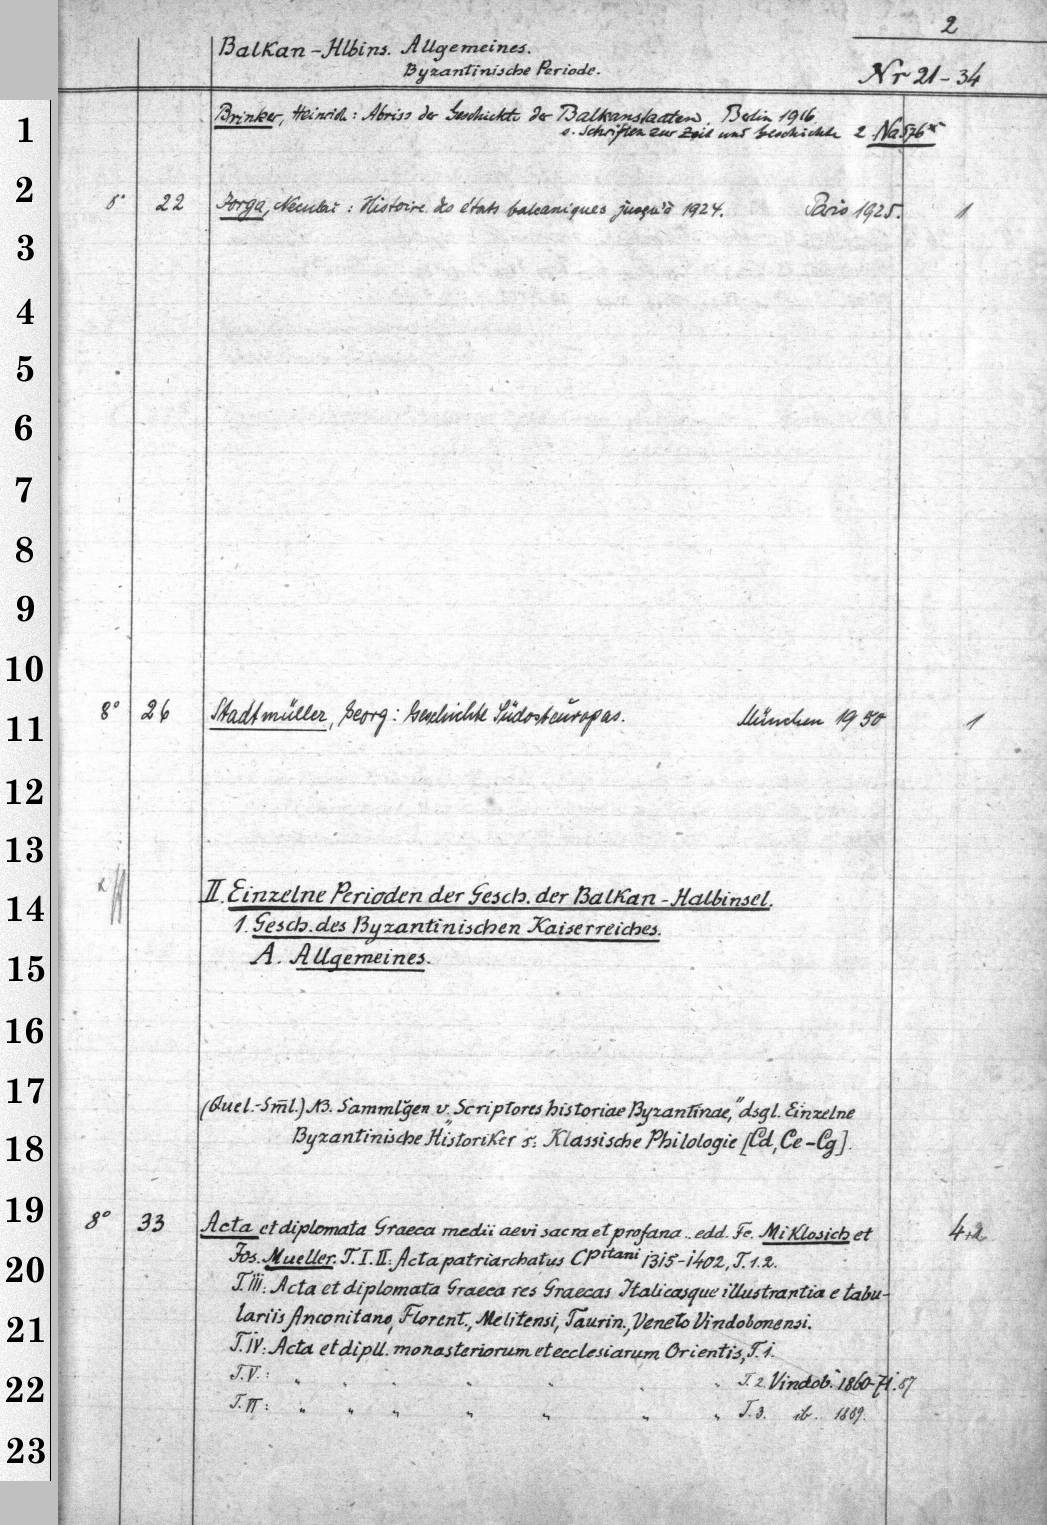 2
Balkan-Hlbins. Allgemeines.
Byzantinische Periode.
Nr 21-34
1
Brinker, Heinrich: Abriss der Geschichte der Balkanstaaten. Berlin 1916
s. Schriften zur Zeit und Geschichte 2 Na 576ˣ
2
8° 22 Jorga, Neculai: Histoire des états balcaniques jusqu'à 1924. Paris 1925. 1
3
4
5
6
7
8
9
10
8° 26 Stadtmüller, Georg: Geschichte Südosteuropas. München 1950 1
11
12
13
II. Einzelne Perioden der Gesch. der Balkan-Halbinsel.
14
1. Gesch. des Byzantinischen Kaiserreiches.
A. Allgemeines.
15
16
17
(Quel.-Sml.) NB. Sammlgen v. "Scriptores historiae Byzantinae," dsgl. Einzelne
Byzantinische Historiker s: Klassische Philologie [Cd, Ce-Cg].
18
19
8° 33 Acta et diplomata Graeca medii aevi sacra et profana.. edd. Fr. Miklosich et 4+2
Jos. Mueller. T. I. II: Acta patriarchatus CPitani 1315-1402, T. 1. 2.
20
T. III: Acta et diplomata Graeca res Graecas Italicasque illustrantia e tabu-
lariis Anconitano, Florent., Melitensi, Taurin., Veneto Vindobonensi.
21
T. IV: Acta et dipll. monasteriorum et ecclesiarum Orientis, T. 1.
T. V: " " " " " " " T. 2. Vindob. 1860-71. 87
22
T. VI: " " " " " " " T. 3. ib. 1889.
23